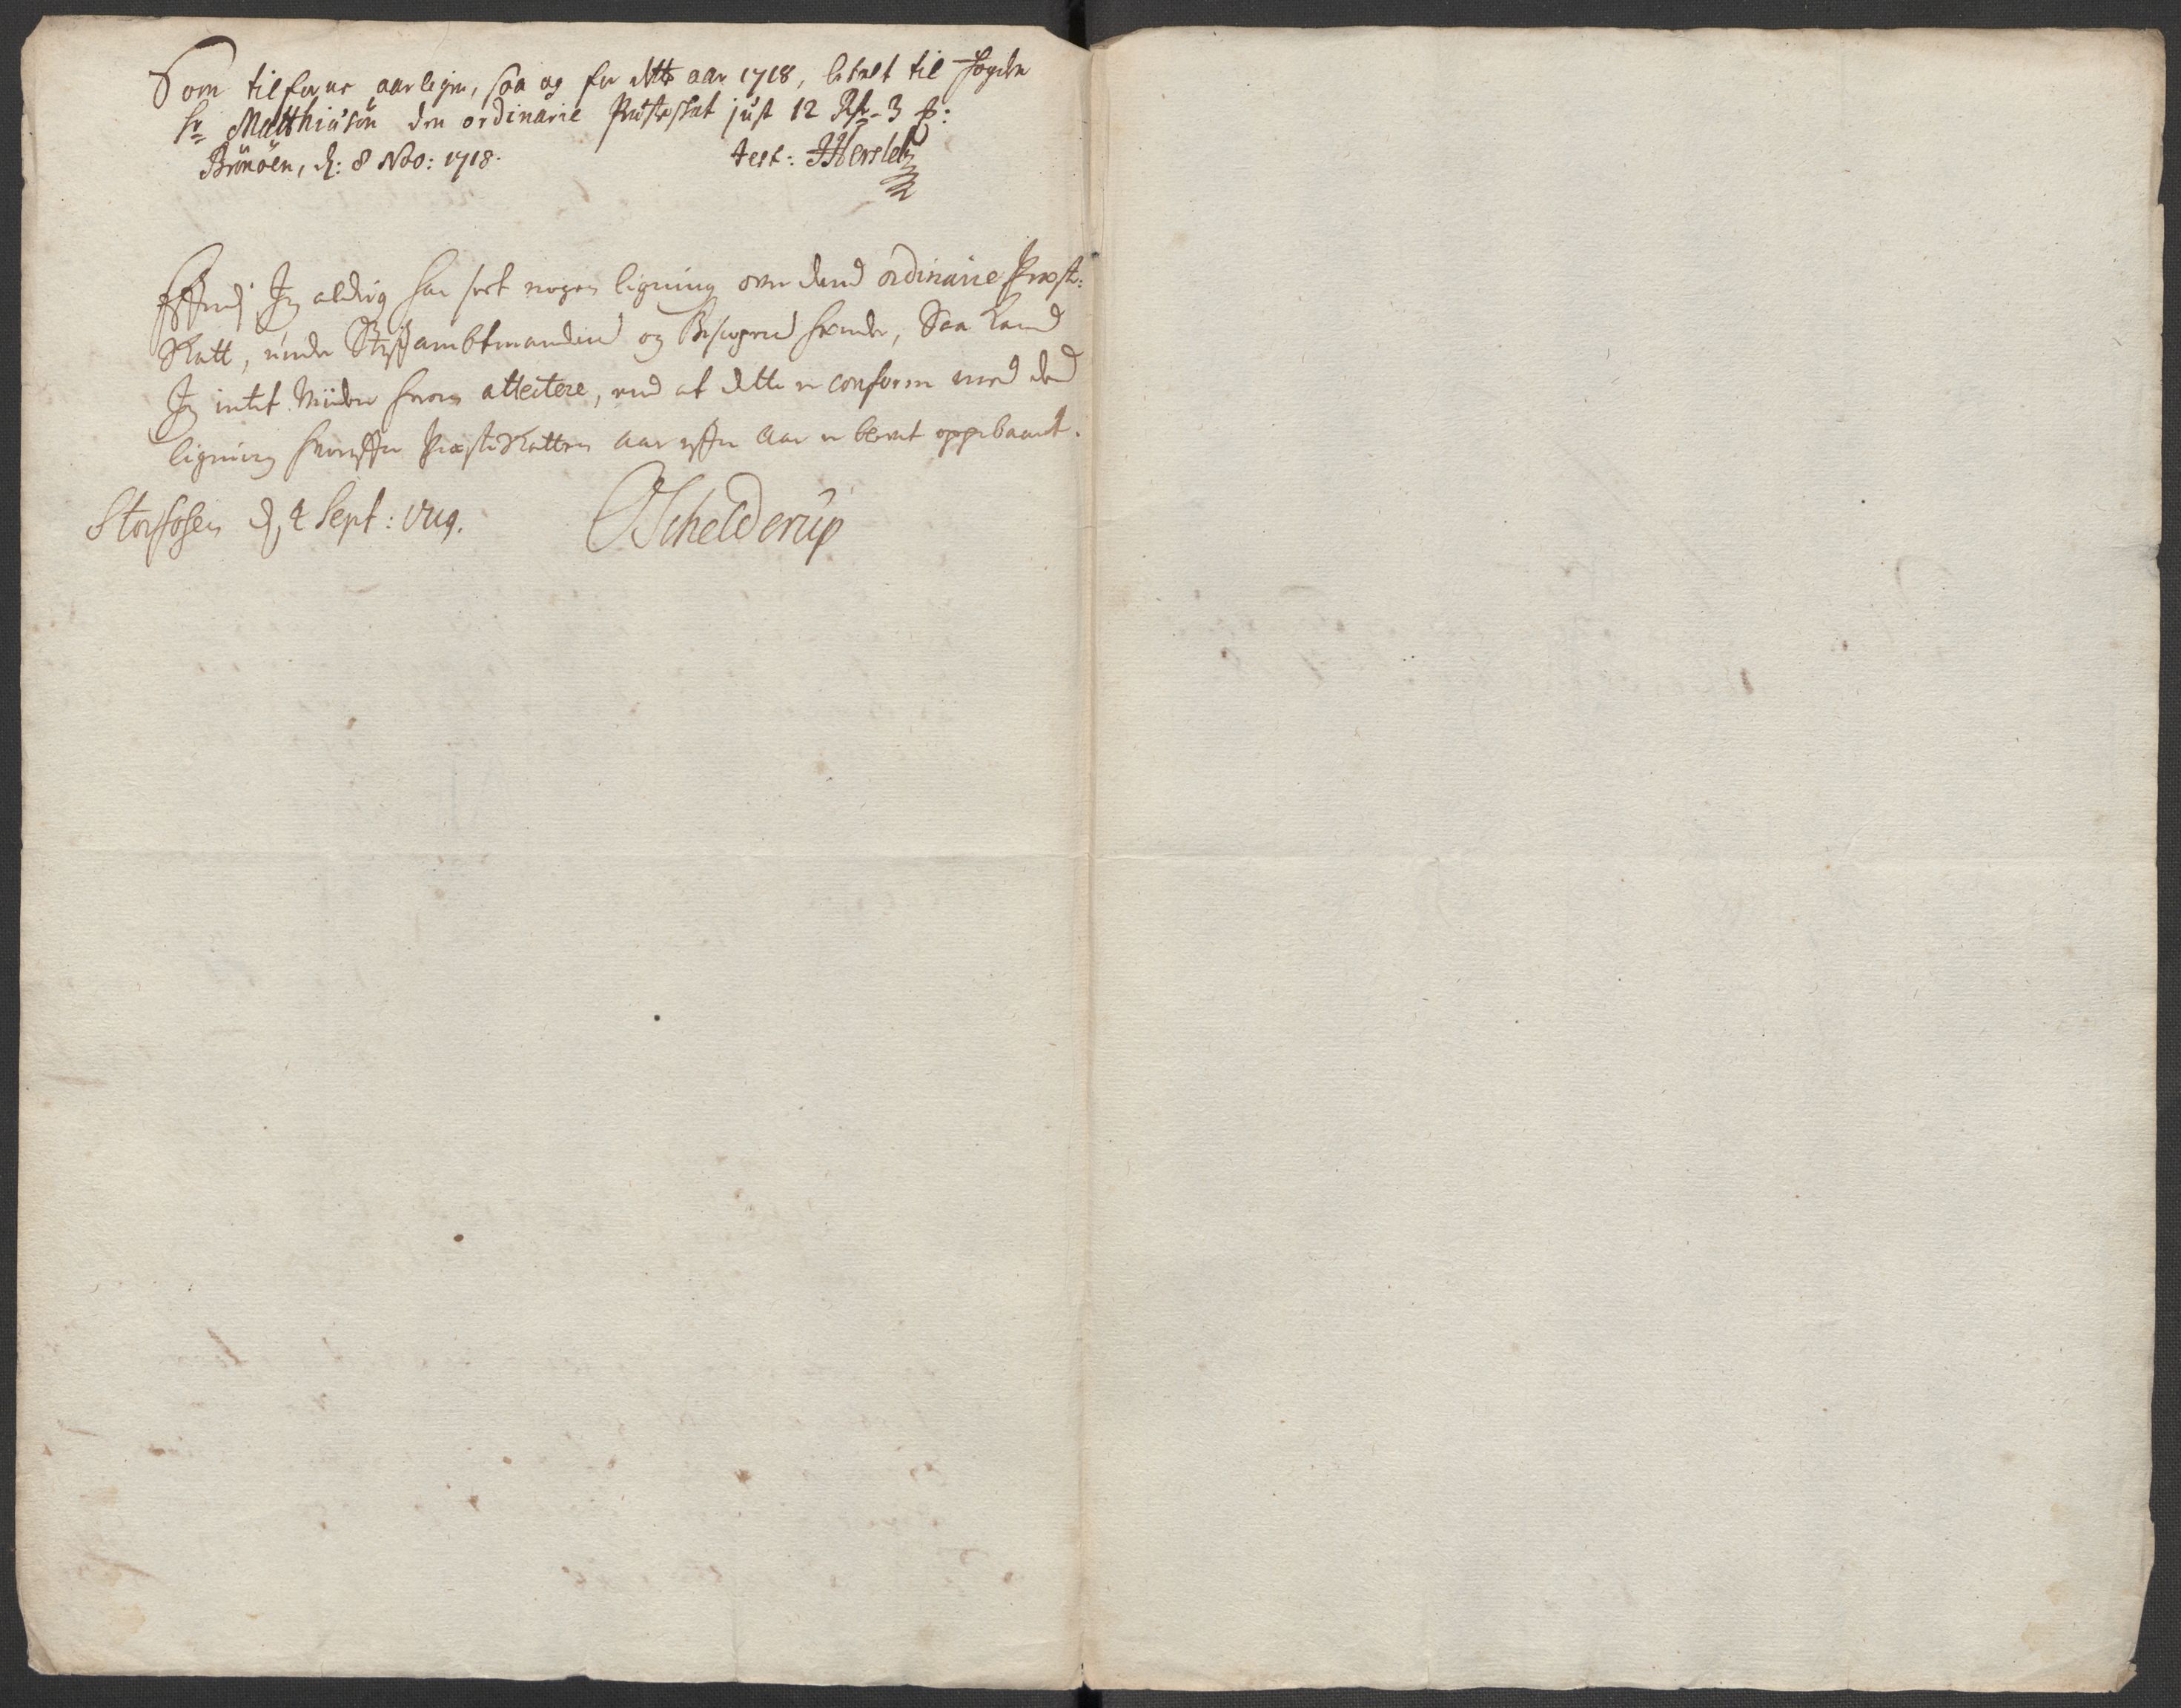 Som tilforne aarligen, saa og for dette aar 1718, betalt til Fogden
Sr Matthiasön den ordinarie Præsteskat just 12 Rdr - 3 ß:
Brönöen, d: 8 Nov: 1718. test: JHersleb
Efftersom Jeg aldrig har seet nogen ligning over dend ordinarie Præste-
Skatt, under Stifftambtmandens og Bispens hender, Saa kand
Jeg intet videre herom attestere, end at dette er conform med dend
ligning hvoreffter PræsteSkatten Aar effter Aar er blevet oppebaaret.
Storfosen d, 4 Sept: 1719. OSchelderup